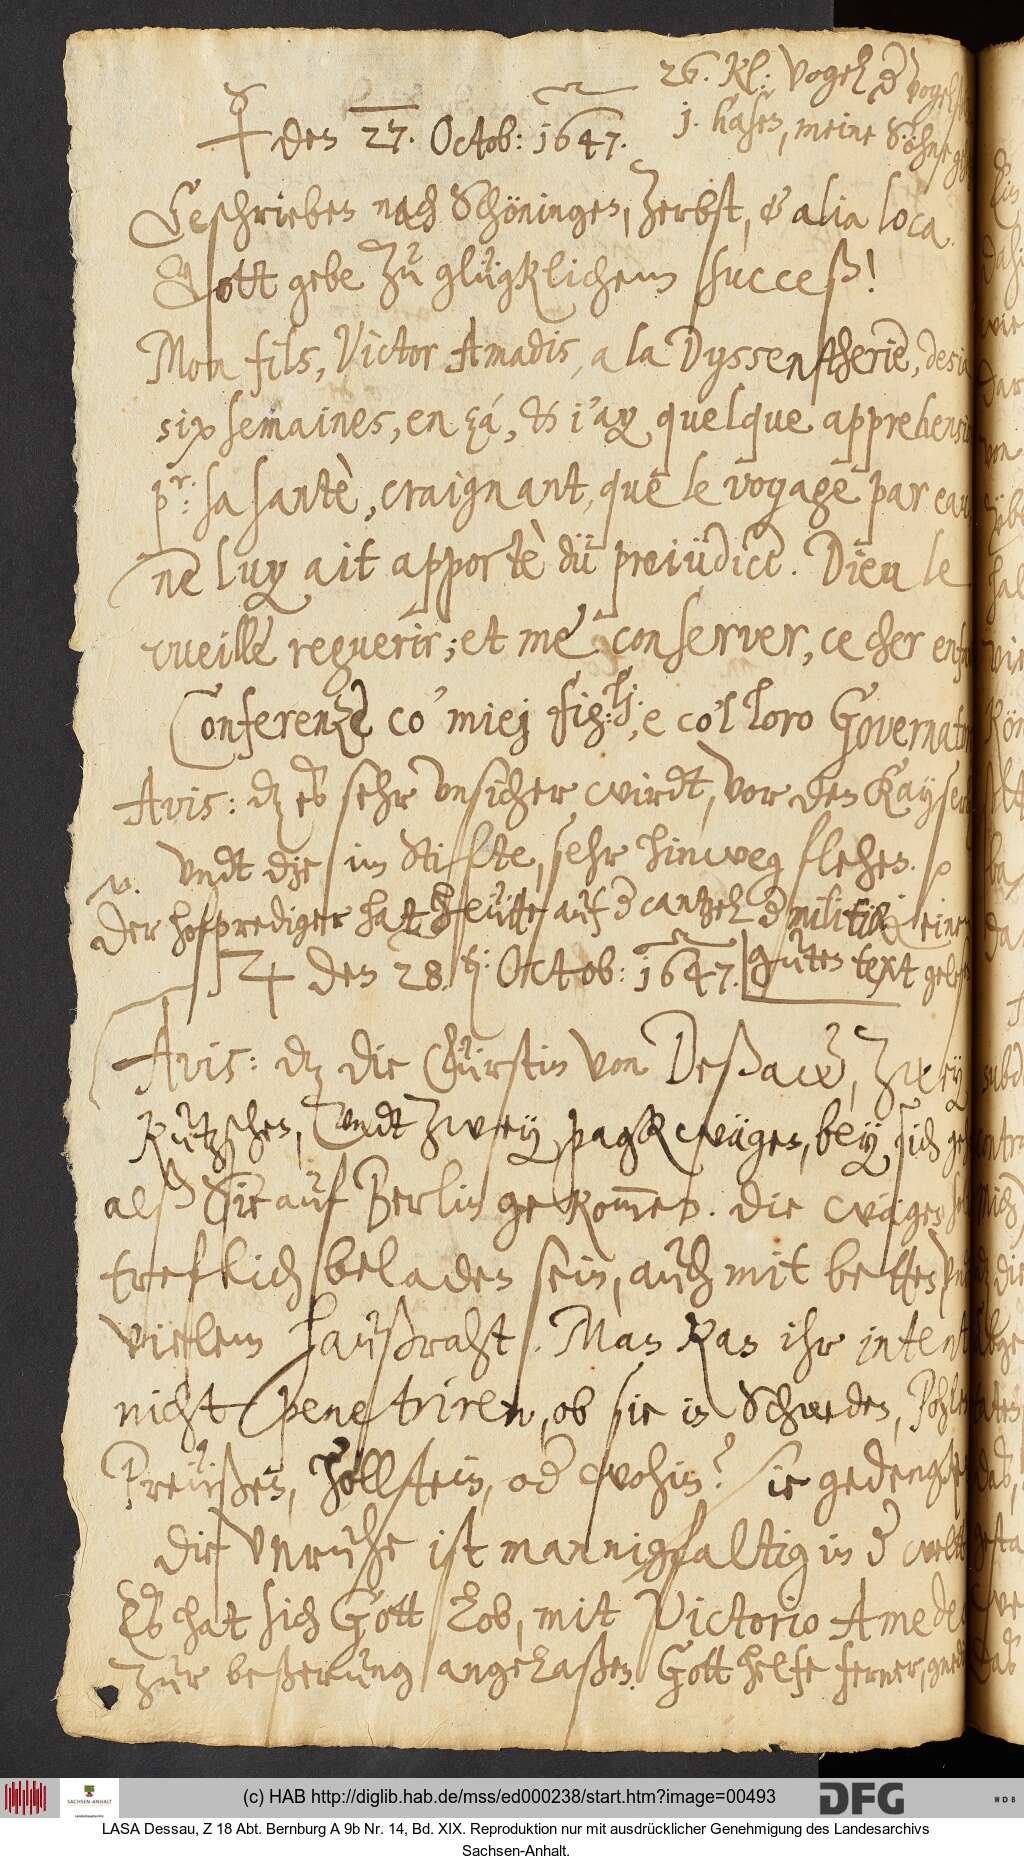 26. kl: Vogel d Vogel
1. hasen, meine Söhne
☿ den 27. Octob: 1647.
Geschrieben nach Schöningen, Zerbst, & alia loca.
Gott gebe zu glügklichem succeß!
Mon fils, Victor Amadis, a la Dyssentherie, desia
six semaines, en çá, & j'ay quelque apprehensi
pr: sa santè, craignant, que le voyage par eau
ne luy ait apportè du preiüdice. Dieu le
vueille reguerir; et me conserver, ce cher enf
Conferenze co' miej figlj:, e co'l loro Governato
Avis: dz es sehr vnsicher wirdt, vor den Kayser
vndt die im Stiffte, sehr hinweg flehen.
Der hofprediger hat heütte auf d cantzel d militia einen
guten text geles
♃ den 28. Octob: 1647.
Avis: dz die Fürstin von Deßaw, zwey
kutzschen, vndt zwey pagkwägen, bey sich
alß Sie auf Berlin gekommen. Die wägen
trefflich beladen sein, auch mit betten vnd
vielem haußraht. Man kan ihr intent
nicht penetriren, ob sie in Schweden, Pohlen
Preüßen, Hollstein, oder wohin? Sie gedengke
die vnruhe ist mannigfaltig in d weltt
Es hat sich Gott lob, mit Victorio Amede
zur beßerung angelaßen. Gott helfe ferner, gned
(c) HAB http://diglib.hab.de/mss/ed000238/start.htm?image=00493
DFG
WDB
SACHSEN-ANHALT
LASA Dessau, Z 18 Abt. Bernburg A 9b Nr. 14, Bd. XIX. Reproduktion nur mit ausdrücklicher Genehmigung des Landesarchivs
Sachsen-Anhalt.